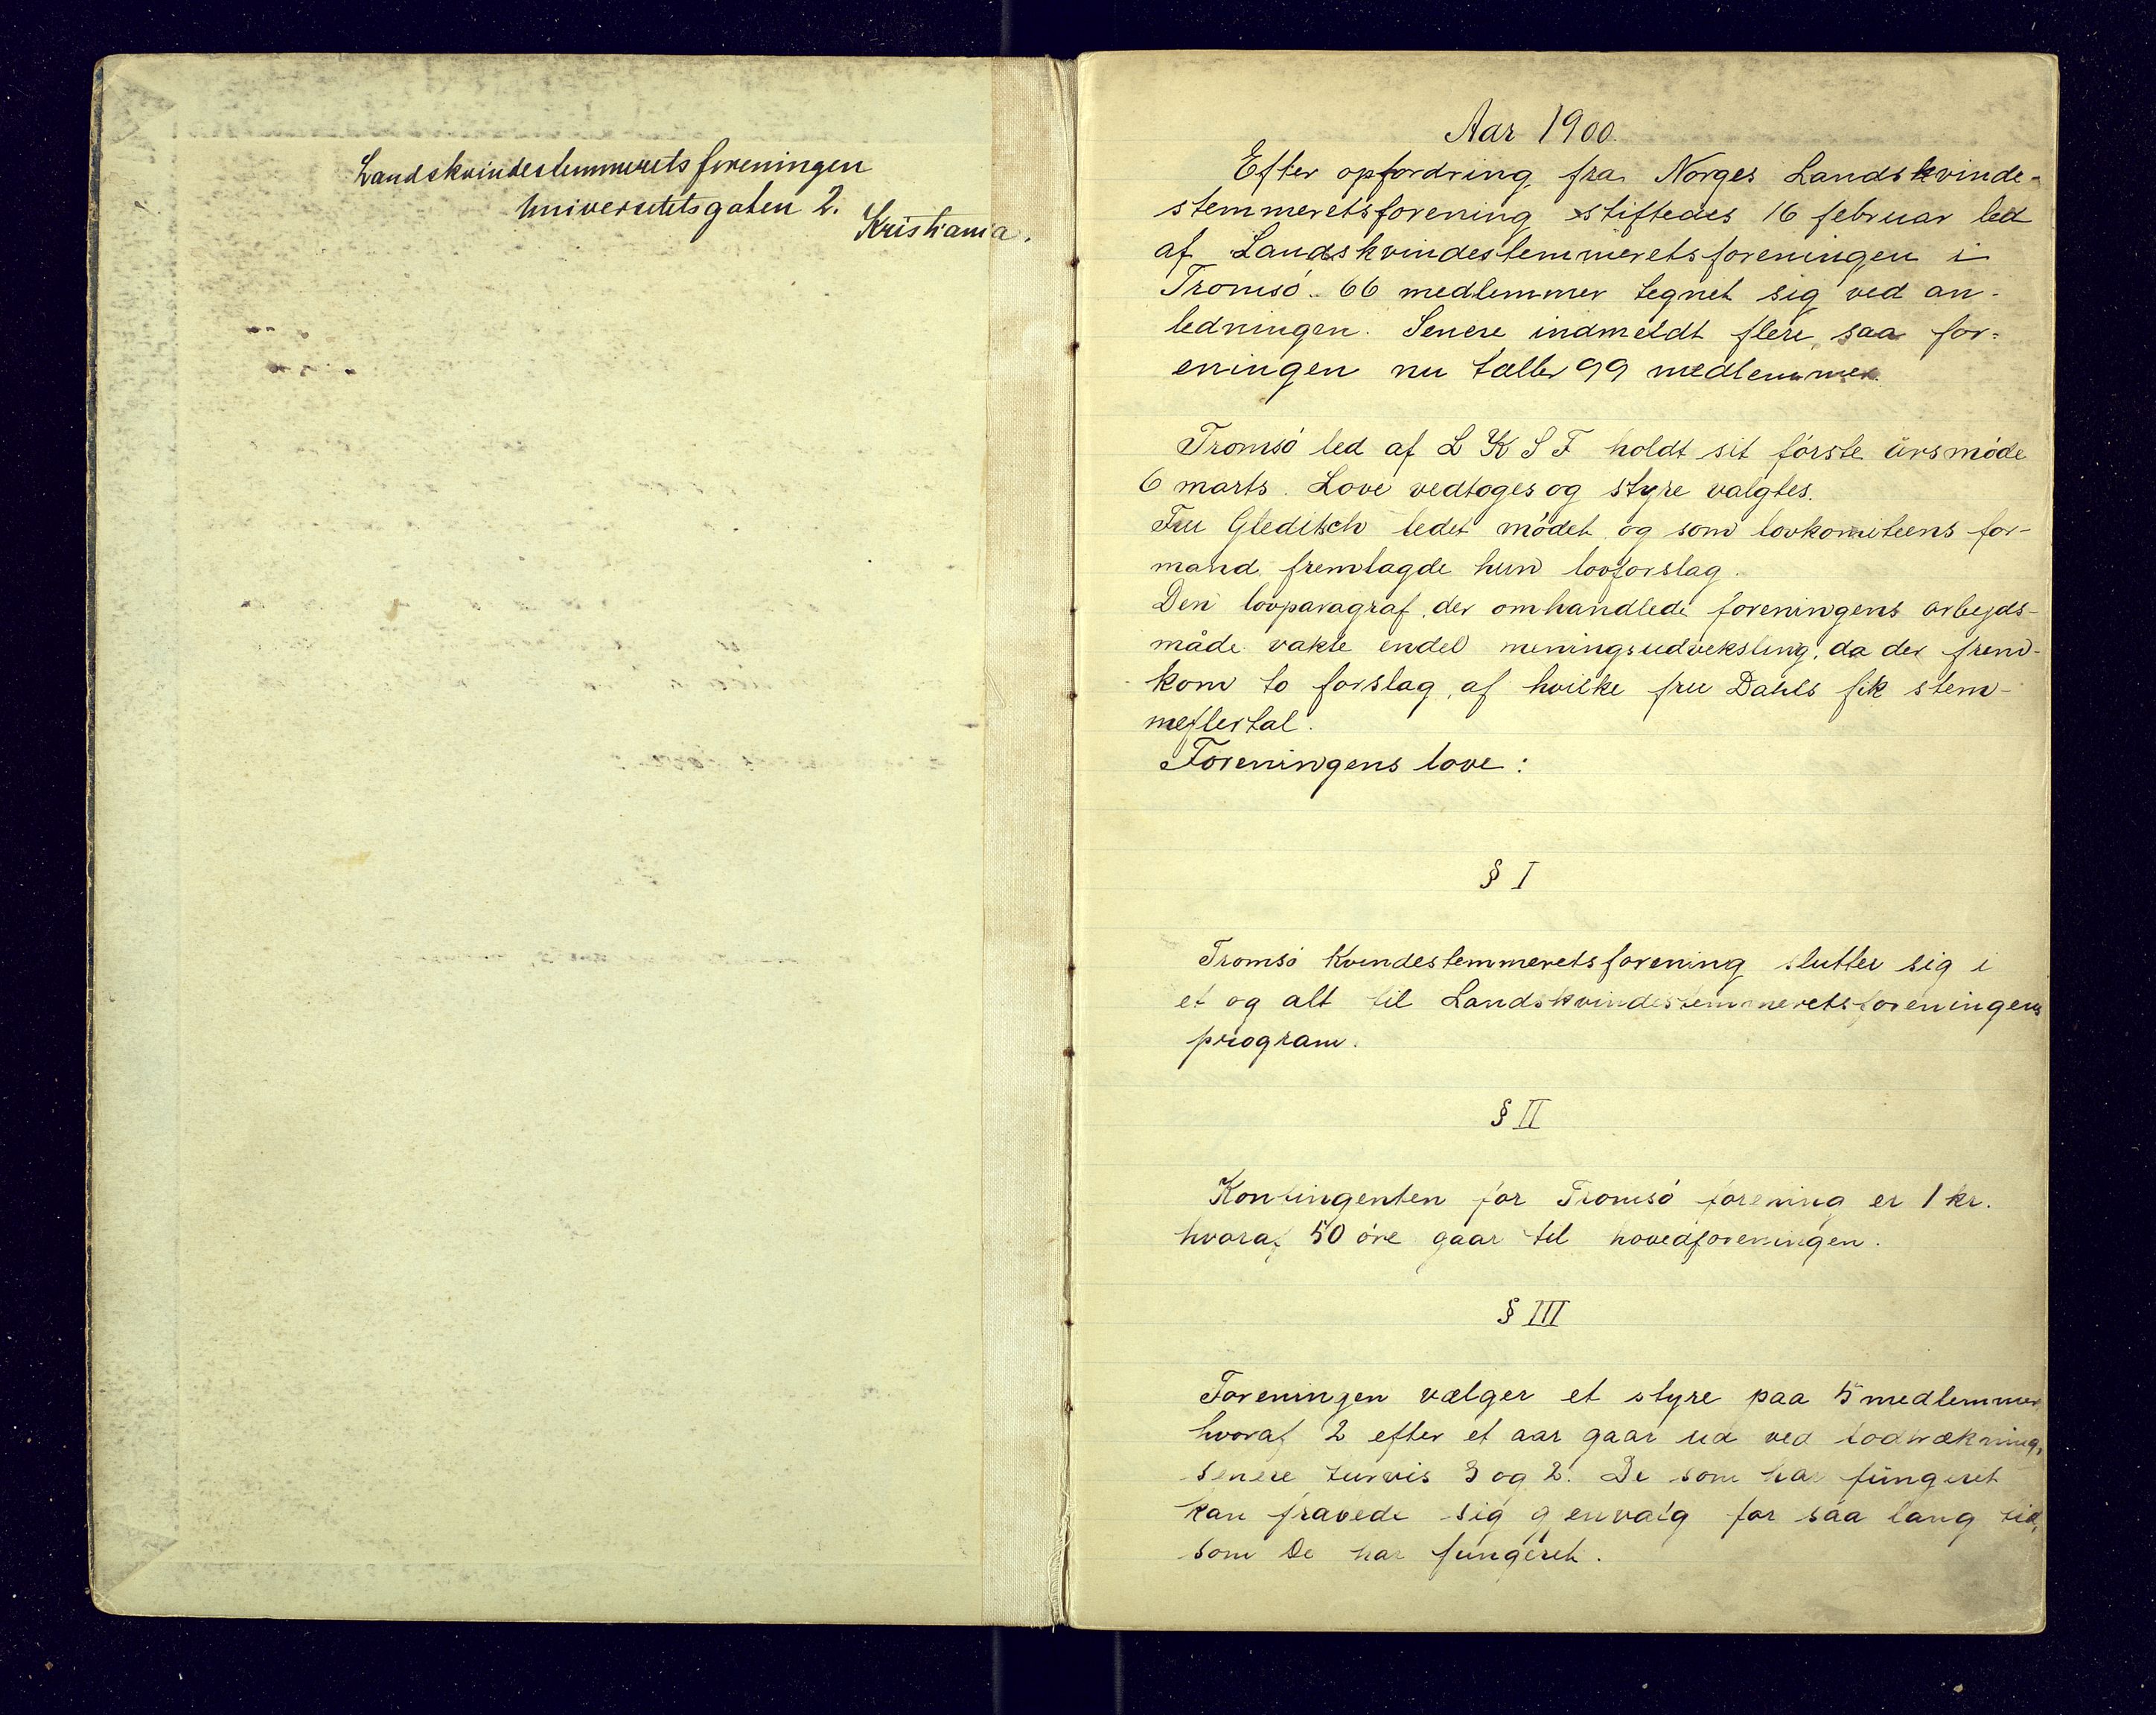 Landskvindestemmeretsforeningen
Universitetsgaten 2.
Kristiania.
Aar 1900.
Efter opfordring fra Norges Landskvinde-
stemmeretsforening stiftedes 16 februar led
af Landskvindestemmeretsforeningen i
Tromsö. 66 medlemmer tegnet sig ved an-
ledningen. Senere indmeldt flere, saa for-
eningen nu tæller 99 medlemmer.
Tromsö led af L K S F holdt sit förste årsmöde
6 marts. Love vedtoges og styre valgtes.
Fru Gleditsch ledet mödet og som lovkomiteens for-
mand fremlagde hun lovforslag.
Den lovparagraf, der omhandlede foreningens arbejds-
måde vakte endel meningsudveksling, da der frem-
kom to forslag, af hvilke fru Dahls fik stem-
meflertal.
Foreningens love:
§ I
Tromsö Kvindestemmeretsforening slutter sig i
et og alt til Landskvindestemmeretsforeningens
program.
§ II
Kontingenten for Tromsö forening er 1 kr.
hvoraf 50 öre gaar til hovedforeningen.
§ III
Foreningen vælger et styre paa 5 medlemmer
hvoraf 2 efter et aar gaar ud ved lodtrækning,
senere turvis 3 og 2. De som har fungeret
kan fravede sig genvalg for saa lang tid,
som De har fungeret.